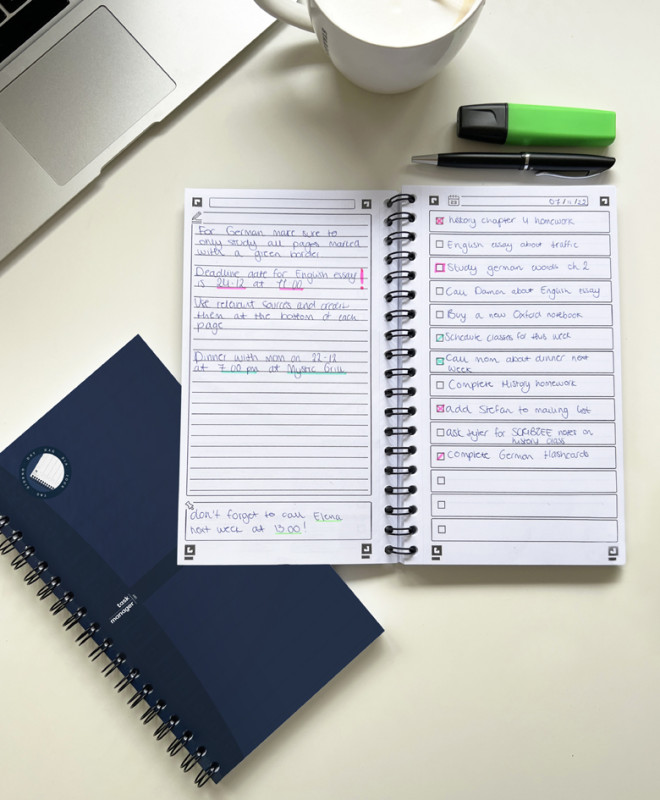 For German make sure to
only study all pages marked
with a green border
Deadline date for English essay!
is 24-12 at 11.00
Use relevant sources and credit
them at the bottom of each
page
Dinner with mom on 22-12
at 7.00 pm at Mystic Grill
don't forget to call Elena
next week at 13.00!
07/11/22
history chapter 4 homework
English essay about traffic
Study german words ch.2
Call Damon about English essay
Buy a new Oxford notebook
Schedule classes for this week
Call mom about dinner next
week
Complete History homework
add Stefan to mailing list
ask tyler for SCRIBZEE notes on
history class
Complete German flashcards
task
manager